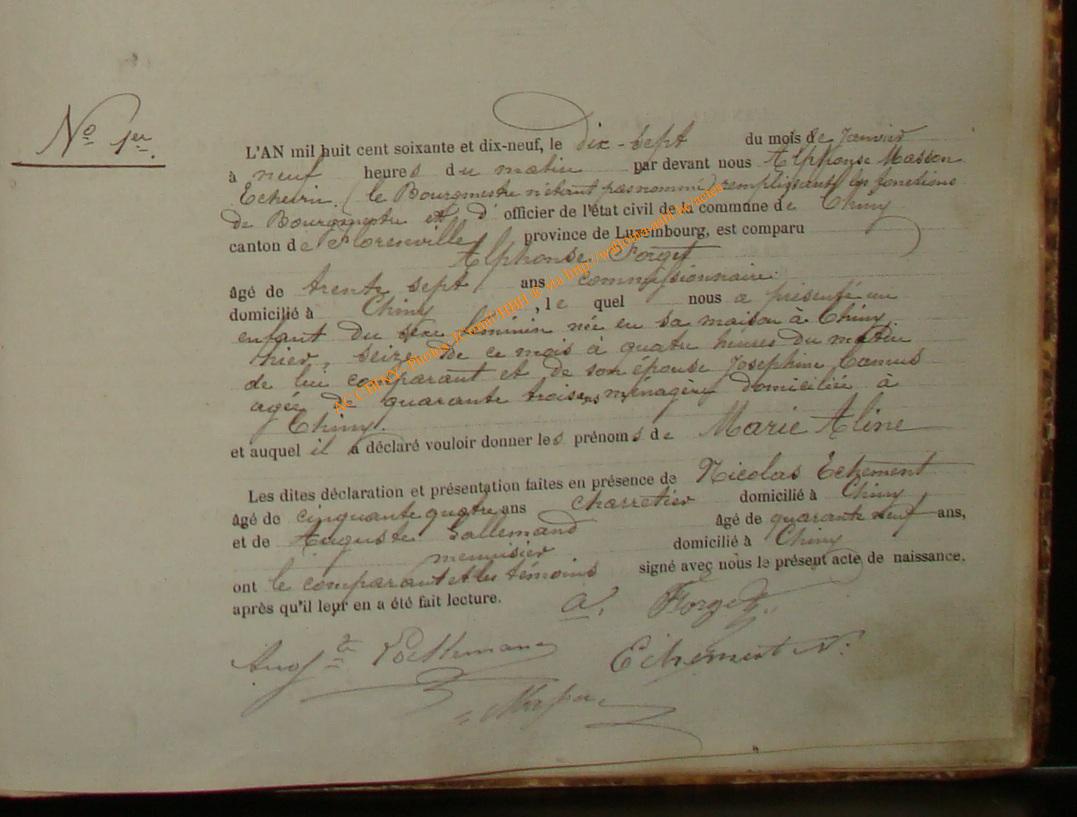 No 1er.
L'AN mil huit cent soixante et dix-neuf, le dix-sept du mois de Janvier
à neuf heures du matin par devant nous Alphonse Masson
Echevin (le Bourgmestre n'étant pas nommé) remplissant les fonctions
de Bourgmestre et d'officier de l'état civil de la commune de Chiny
canton de Florenville province de Luxembourg, est comparu
Alphonse Forget
âgé de trente sept ans commissionnaire
domicilié à Chiny, le quel nous a présenté un
enfant du sexe féminin née en sa maison à Chiny
hier, seize de ce mois à quatre heures du matin
de lui comparant et de son épouse Joséphine Camus
agée de quarante trois ans ménagère domiciliée à
Chiny.
et auquel il a déclaré vouloir donner les prénoms de Marie Aline
Les dites déclaration et présentation faites en présence de Nicolas Echement
âgé de cinquante quatre ans charretier domicilié à Chiny
et de Auguste âgé de quarante neuf ans,
menuisier domicilié à Chiny
ont le comparant et les témoins signé avec nous le présent acte de naissance.
après qu'il leur en a été fait lecture.
A. Forget
Augte Echement N.